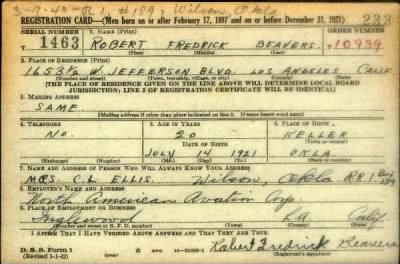 3-9-43-
Wilson Okla
233
REGISTRATION CARD—(Men born on or after February 17, 1897 and on or before December 31, 1921)
SERIAL NUMBER 1. NAME (Print) ORDER NUMBER
1463 ROBERT FREDRICK BEAVERS. 10939
(First) (Middle) (Last)
2. PLACE OF RESIDENCE (Print)
1653½ W. JEFFERSON BLVD. LOS ANGELES CALIF
(Number and street) (Town, township, village, or city) (County) (State)
[THE PLACE OF RESIDENCE GIVEN ON THE LINE ABOVE WILL DETERMINE LOCAL BOARD
JURISDICTION; LINE 2 OF REGISTRATION CERTIFICATE WILL BE IDENTICAL]
3. MAILING ADDRESS
SAME
[Mailing address if other than place indicated on line 2. If same insert word same]
4. TELEPHONE 5. AGE IN YEARS 6. PLACE OF BIRTH
NO. 20 KELLER
DATE OF BIRTH
JULY 14 1921 OKLA.
7. NAME AND ADDRESS OF PERSON WHO WILL ALWAYS KNOW YOUR ADDRESS
MRS. C.L. ELLIS. Wilson, Okla RR 1 Box
8. EMPLOYER'S NAME AND ADDRESS
North American Aviation Corp.
9. PLACE OF EMPLOYMENT OR BUSINESS
Inglewood L.A. Calif.
(Number and street or R. F. D. number) (Town) (County) (State)
I AFFIRM THAT I HAVE VERIFIED ABOVE ANSWERS AND THAT THEY ARE TRUE.
D. S. S. Form 1
(Revised 1-1-42) Robert Fredrick Beavers
(Registrant's signature)